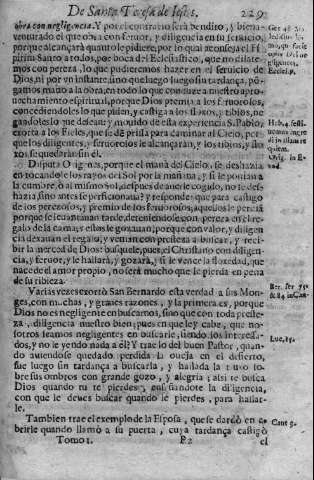 De Santa Teresa de Iesus. 229
obra con negligencia. Y por el contrario será bendito, y bien a-
venturado el que obra con feruor, y diligencia en su seruicio,
porque alcançará quanto le pidiere, por lo qual aconseja el Es
piritu Santo a todos, por boca del Eclesiastico, que no dilate-
mos con pereza, lo que pudieremos hazer en el seruicio de
Dios, ni por vn instante, sino que luego luego sin tardança, pō-
gamos mano a la obra, en todo lo que conduze a nuestro apro-
uechamiento espiritual, porque Dios premia a los feruorosos,
concediendoles lo que piden, y castiga a los floxos, y tibios, ne
gandoles lo que demandan, y mouido de esta experiencia S. Pablo,
exorta a los Fieles, que se dē prissa para caminar al Cielo, por-
que los diligentes, y feruorosos le alcançarán, y los tibios, y flo-
xos se quedarán sin él.
Disputa Origenes, porque el maná del Cielo, se deshazia
en tocandole los rayos del Sol por la mañana, y si le ponian a
la cumbre, ò al mismo Sol, despues de auerle cogido, no se des-
hazia, sino antes se perficionaua? y responde: que para castigo
de los perezosos, y premio de los feruorosos, aquellos le perdiā
porque se leuantauan tarde, deteniendose con pereza en el re-
galo de la cama; y estos le gozauan, porque con valor, y diligen
cia dexauan el regalo, y venian con presteza a buscar, y reci-
bir la merced de Dios: busquele, pues, el Christiano con diligen-
cia, y feruor, y le hallará, y gozará, y si le vence la floxedad, que
nace de el amor propio, no será mucho que le pierda en pena
de su tibieza.
Varias vezes exortò San Bernardo esta verdad a sus Mon-
ges, con muchas, y graues razones, y la primera es, porque
Dios no es negligente en buscarnos, sino que con toda preste-
za, y diligencia nuestro bien; pues en que ley cabe, que no-
sotros seamos negligentes en buscarle, siendo los interesa-
dos, y no le yendo nada a él? Y trae lo del buen Pastor, quan-
do auiendose quedado perdida la oueja en el desierto,
fue luego sin tardança a buscarla, y hallada la truxo so-
bre sus ombros con grande gozo, y alegria; assi te busca
Dios quando te pierdes, enseñandote la diligencia,
con que le deues buscar quando le pierdes, para hallar-
le.
Tambien trae el exemplo de la Esposa, que se tardò en a-
brirle quando llamò a su puerta, cuya tardança castigò
Tomo I. P2 el
Eccles. 9.
Heb. 4.
Orig. in Ex-
od.
Ber. ser. 75.
& 84. in Can-
Luc. 15.
Cant. 5.